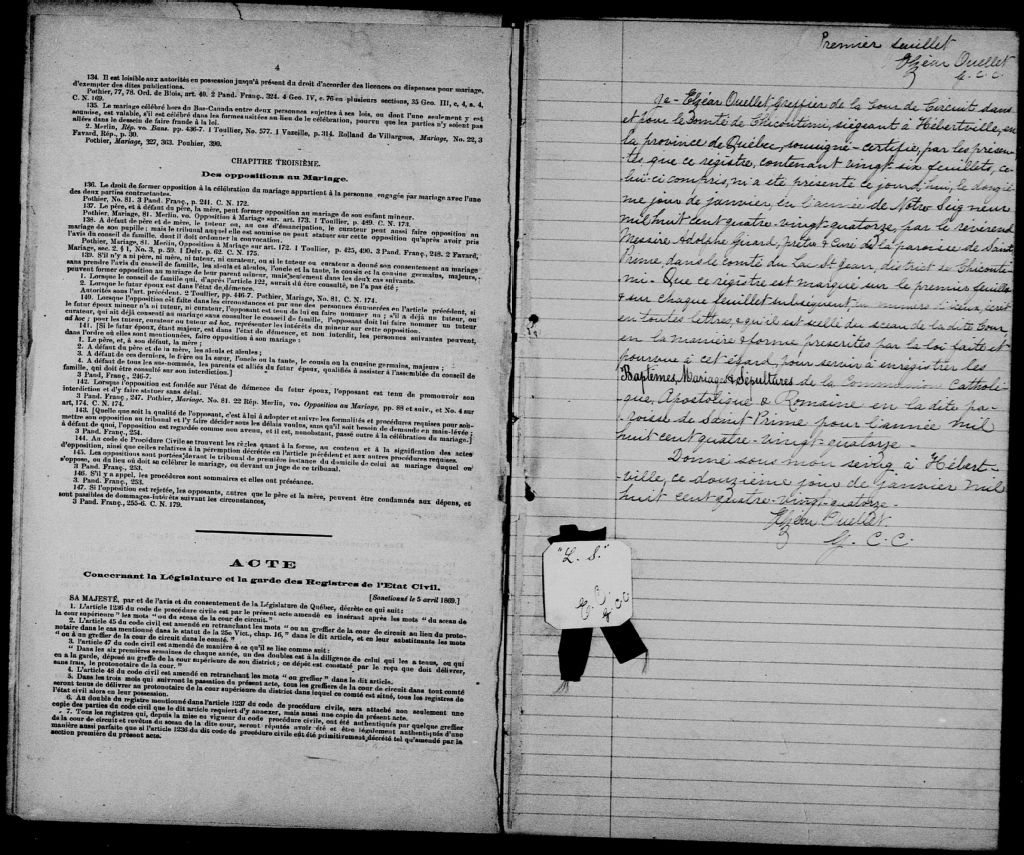 4
134. Il est loisible aux autorités en possession jusqu'à présent du droit d'accorder des licences ou dispenses pour mariage,
d'exempter des dites publications.
Pothier, 77, 78. Ord. de Blois, art. 40. 2 Pand. Franç., 324. 4 Geo. IV, c. 76 en plusieurs sections, 35 Geo. III, c, 4, s. 4,
C. N. 169.
135. Le mariage célébré hors du Bas-Canada entre deux personnes sujettes à ses lois, ou dont l'une seulement y est
soumise, est valable, s'il est célébré dans les formes usitées au lieu de la célébration, pourvu que les parties n'y soient pas
allées dans le dessein de faire fraude à la loi.
2. Merlin, Rép. vo. Bans. pp. 436-7. 1 Toullier, No. 577. 1 Vazeille, p. 314. Rolland de Villargues, Mariage, No. 22, 3
Favard, Rép., p. 30.
Pothier, Mariage, 327, 363. Pouhier, 390.
CHAPITRE TROISIÈME.
Des oppositions au Mariage.
136. Le droit de former opposition à la célébration du mariage appartient à la personne engagée par mariage avec l'une
des deux parties contractantes.
Pothier, No. 81. 3 Pand. Franç., p. 241. C. N. 172.
137. Le père, et à défaut du père, la mère, peut former opposition au mariage de son enfant mineur.
Pothier, Mariage, 81. Merlin, vo. Opposition à Mariage sur. art. 173. 1 Toullier, p. 489. C. N. 173.
138. A défaut de père et de mère, le tuteur ou, au cas d'émancipation, le curateur peut aussi faire opposition au
mariage de son pupille; mais le tribunal auquel elle est soumise ne peut statuer sur cette opposition qu'après avoir pris
l'avis du conseil de famille, dont il doit ordonner la convocation.
Pothier, Mariage, 81. Merlin, Opposition à Mariage sur art. 172. 1 Toullier, p. 425, 490. 3 Pand. Franç., 248. 2 Favard,
Mariage, sec. 2, § 1, No. 3, p. 59. 1 Delv. p. 62. C. N. 175.
139. S'il n'y a ni père, ni mère, ni tuteur, ni curateur, ou si le tuteur ou curateur a donné son consentement au mariage
sans prendre l'avis du conseil de famille, les aïeuls et aïeules, l'oncle et la tante, le cousin et la cousine germains, majeurs,
peuvent former opposition au mariage de leur parent mineur, mais seulement dans les deux cas suivants.
1. Lorsque le conseil de famille qui, d'après l'article 122, aurait dû être consulté, ne l'a pas été;
2. Lorsque le futur époux est dans l'état de démence.
Autorités sous l'art. précédent. 2 Toullier, pp. 446-7. Pothier, Mariage, No. 81. C. N. 174.
140. Lorsque l'opposition est faite dans les circonstances et par une des personnes énoncées en l'article précédent, si
le futur époux mineur n'a ni tuteur, ni curateur, l'opposant est tenu de lui en faire nommer un; s'il a déjà un tuteur, ou
curateur, qui ait déjà consenti au mariage sans consulter le conseil de famille, l'opposant doit lui faire nommer un tuteur
ad hoc; pour les tuteur, curateur ou tuteur ad hoc, représenter les intérêts du mineur sur cette opposition.
141. [Si le futur époux, étant majeur, est dans l'état de démence, et non interdit, les personnes suivantes peuvent,
dans l'ordre où elles sont mentionnées, faire opposition à son mariage:
1. Le père, et, à son défaut, la mère;
2. A défaut du père et de la mère, les aïeuls et aïeules;
3. A défaut de ces derniers, le frère ou la sœur, l'oncle ou la tante, le cousin ou la cousine germains, majeurs;
4. A défaut de tous les sus-nommés, les parents et alliés du futur époux, qualifiés à assister à l'assemblée du conseil de
famille, qui doit être consulté sur son interdiction.]
3 Pand. Franç., 246-7.
142. Lorsque l'opposition est fondée sur l'état de démence du futur époux, l'opposant est tenu de promouvoir son
interdiction et d'y faire statuer sans délai.
3 Pand. Franç., 247. Pothier, Mariage. No. 81. 22 Rép. Merlin, vo. Opposition au Mariage, pp. 88 et suiv., et No. 4 sur
art. 174. C. N. 174.
143. [Quelle que soit la qualité de l'opposant, c'est à lui à adopter et suivre les formalités et procédures requises pour soumettre son opposition au tribunal et l'y faire décider sous les délais voulus, sans qu'il soit besoin de demande en main-levée;
à défaut de quoi, l'opposition est regardée comme non avenu, et il est, nonobstant, passé outre à la célébration du mariage.]
3 Pand. Franç., 254.
144. Au code de Procédure Civile se trouvent les règles quant à la forme, au contenu et à la signification des actes
d'opposition, ainsi que celles relatives à la péremption décrétée en l'article précédent et aux autres procédures requises.
145. Les oppositions sont portées devant le tribunal de première instance du domicile de celui au mariage duquel on
s'oppose, ou du lieu où doit se célébrer le mariage, ou devant un juge de ce tribunal.
3 Pand. Franç., 253.
146. S'il y a appel, les procédures sont sommaires et elles ont préséance.
3 Pand. Franç., 253.
147. Si l'opposition est rejetée, les opposants, autres que le père et la mère, peuvent être condamnés aux dépens, et
sont passibles de dommages-intérêts suivant les circonstances,
3 Pand. Franç., 255-6. C. N. 179.
ACTE
Concernant la Législature et la garde des Registres de l'Etat Civil.
[Sanctionné le 5 avril 1869.]
SA MAJESTÉ, par et de l'avis et du consentement de la Législature de Québec, décrète ce qui suit:
1. L'article 1236 du code de procédure civile est par le présent acte amendé en insérant après les mots "du sceau de
la cour supérieure" les mots "ou du sceau de la cour de circuit."
2. L'article 45 du code civil est amendé en retranchant les mots "ou au greffier de la cour de circuit au lieu du protonotaire dans le cas mentionné dans le statut de la 25e Vict., chap. 16," dans le dit article, et en leur substituants les mots
"ou à un greffier de la cour de circuit dans le comté."
3. l'article 47 du code civil est amendé de manière à ce qu'il se lise comme suit:
"Dans les six premières semaines de chaque année, un des doubles est à la diligence de celui qui les a tenus, ou qui
en a la garde, déposé au greffe de la cour supérieure de son district; ce dépôt est constaté par le reçu que doit délivrer,
sans frais, le protonotaire de la cour."
4. L'article 48 du code civil est amendé en retranchant les mots "ou greffier" dans le dit article.
5. Dans les trois mois qui suivront la passation du présent acte, tous les greffiers de la cour de circuit dans tout comté
seront tenus de délivrer au protonotaire de la cour supérieure du district dans lequel ce comté est situé, tous les registres de
l'état civil alors en leur possession.
6. Au double du registre mentionné dans l'article 1237 du code de procédure civile, sera attaché non seulement une
copie des parties du code civil que le dit article requiert d'y annexer, mais aussi une copie du présent acte.
7. Tous les registres qui, depuis la mise en vigueur du code procédure civile, ont été authentiqués par quelque greffier
de la cour de circuit et revêtus du sceau de la dite cour, seront réputés avoir été et être légalement authentiqués d'une
manière aussi parfaite que si l'article 1236 du dit code de procédure civile eût été primitivement décrété tel qu'amendé par la
section première du présent acte.
Premier feuillet
Elzéar Ouellet
G. C. C.
Je - Elzéar Ouellet, Greffier de la Cour de Circuit dans
et pour le Comté de Chicoutimi, siégeant à Hébertville, en
la province de Québec, soussigné - certifie, par les présen-
tes que ce registre, contenant vingt-six feuillets, ce-
lui-ci compris, m'a été présenté ce jourd'hui, le douziè-
me jour de janvier, en l'année de Notre Seigneur
mil huit cent quatre-vingt-quatorze, par le révérend
Messire Adolphe Girard, prêtre & Curé de la paroisse de Saint
Prime dans le comté du Lac St Jean, district de Chicouti-
mi - Que ce registre est marqué sur le premier feuillet
& sur chaque feuillet subséquent, du numéro d'iceux, écrit
en toutes lettres, & qu'il est scellé du sceau de la dite Cour,
en la manière & forme prescrites par la loi faite et
pourvue à cet égard, pour servir à enregistrer les
Baptêmes, Mariages & Sépultures de la Communion Catholi-
que, Apostolique & Romaine en la dite pa-
roisse de Saint Prime pour l'année mil
huit cent quatre-vingt-quatorze -
Donné sous mon seing à Hébert-
ville, ce douzième jour de Janvier mil
huit cent quatre-vingt-quatorze -
Elzéar Ouellet
G. C. C.
"L. S."